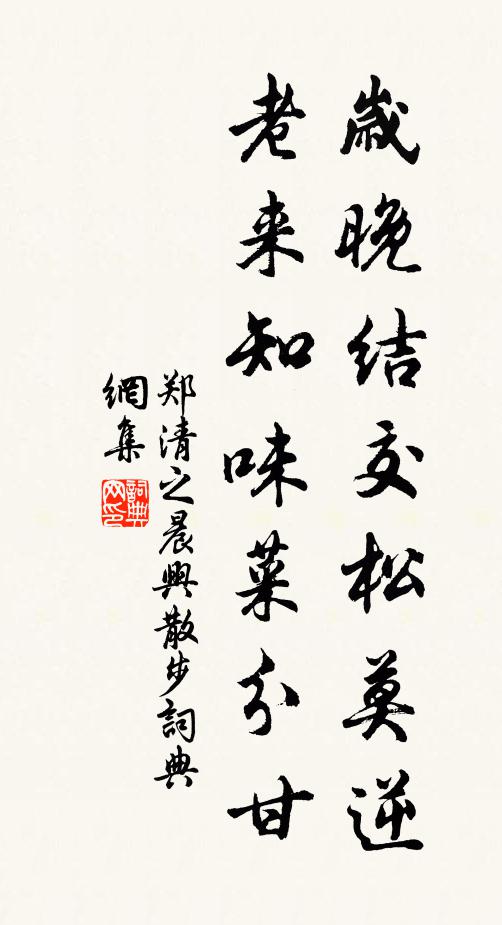 歲晚結交松莫逆
老来知味菜分甘
郑清之晨興散步詞典
網集
詞典网印